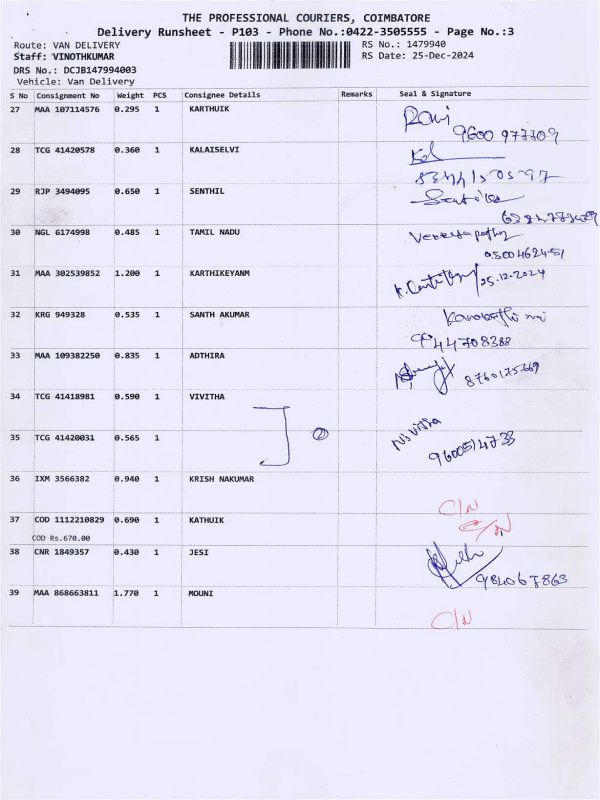 THE PROFESSIONAL COURIERS, COIMBATORE
Delivery Runsheet - P103 - Phone No.:0422-3505555 - Page No.:3
Route: VAN DELIVERY
RS No.: 1479940
Staff: VINOTHKUMAR
RS Date: 25-Dec-2024
DRS No.: DCJB147994003
Vehicle: Van Delivery
S No Consignment No Weight PCS Consignee Details Remarks Seal & Signature
27 MAA 107114576 0.295 1 KARTHUIK
28 TCG 41420578 0.360 1 KALAISELVI
29 RJP 3494095 0.650 1 SENTHIL
30 NGL 6174998 0.485 1 TAMIL NADU
31 MAA 302539852 1.200 1 KARTHIKEYANM
25.12.2024
32 KRG 949328 0.535 1 SANTH AKUMAR
9944708388
33 MAA 109382250 0.835 1 ADTHIRA
34 TCG 41418981 0.590 1 VIVITHA
35 TCG 41420031 0.565 1 ②
9600514733
36 IXM 3566382 0.940 1 KRISH NAKUMAR
C/N
37 COD 1112210829 0.690 1 KATHUIK C/N
COD Rs.670.00
38 CNR 1849357 0.430 1 JESI
39 MAA 868663811 1.770 1 MOUNI
C/N